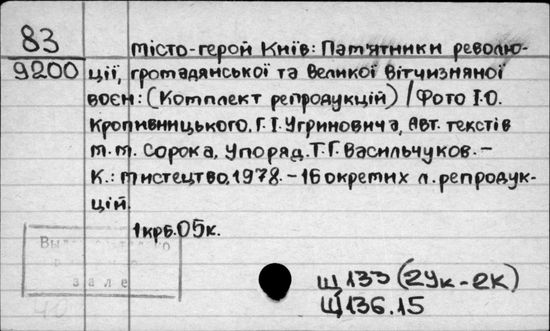 83
9200
Місто-герой Київ: Пам'ятники революції, громадянської та Великої Вітчизняної
воєн: (Комплект репродукцій) / Фото І.О.
Кропивницького, Г.І. Угриновича, Авт. текстів
М.М. Сорока, Упоряд. Т.Г. Васильчуков. –
К.: Мистецтво, 1978. – 16 окремих л. репродук-
цій.
1крб.05к.
зале
40
Щ133(2Ук-2К)
Щ136.15